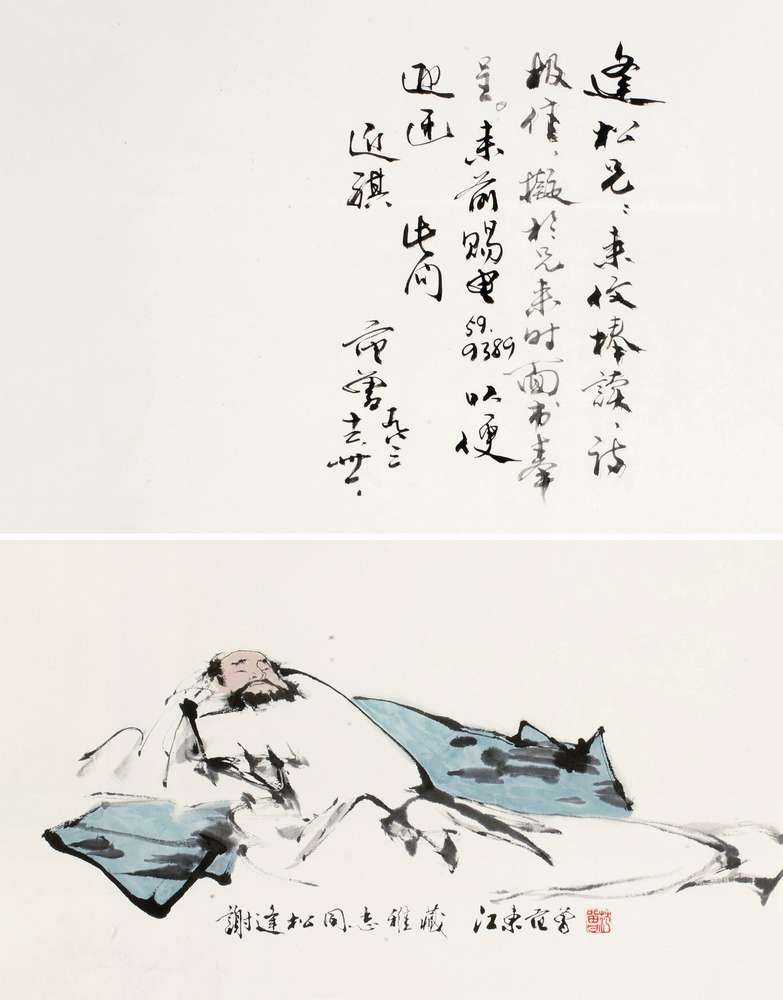 逢松兄：来仪捧读，诗
极佳，拟于兄来时面书奉
呈。来前赐电59.9389以便
迎迓
此问
近祺
范曾
九三
十、卅一。
谢逢松同志雅藏 江东范曾